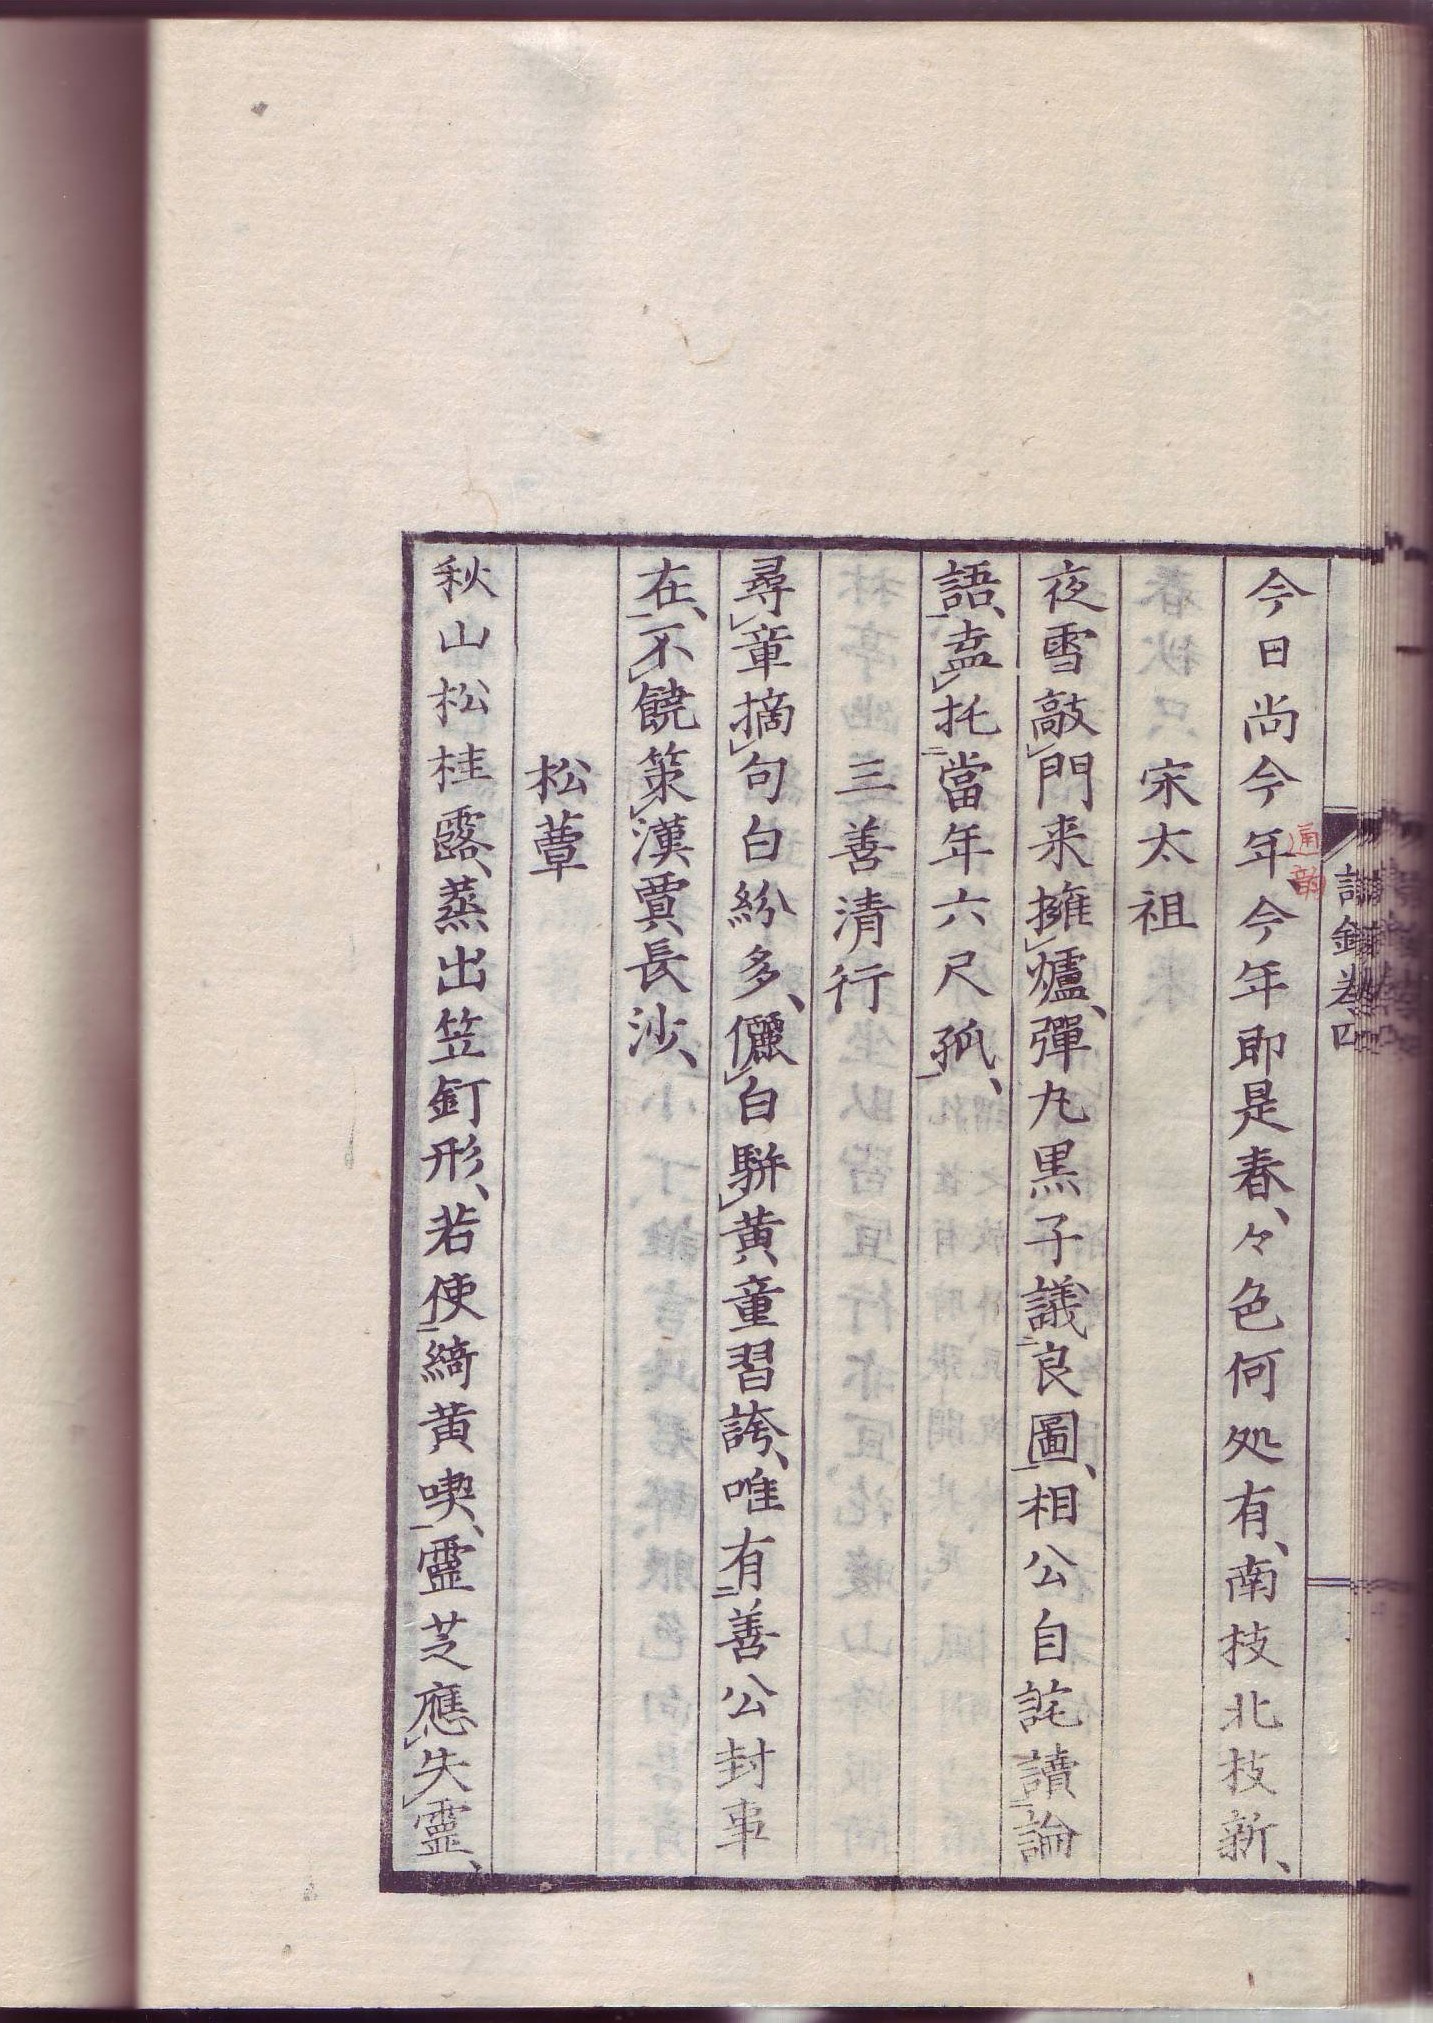 今日尚今年、今年即是春、々色何処有、南枝北枝新、
通韵
宋太祖
夜雪敲門来擁爐、彈丸黒子議良圖、相公自詫讀論
語、盍托當年六尺孤、
三善清行
尋章摘句白紛多、儷白駢黄童習誇、唯有善公封事
在、不饒策漢賈長沙、
松蕈
秋山松桂露、蒸出笠釘形、若使綺黄喫、靈芝應失靈、
詩鈔卷四